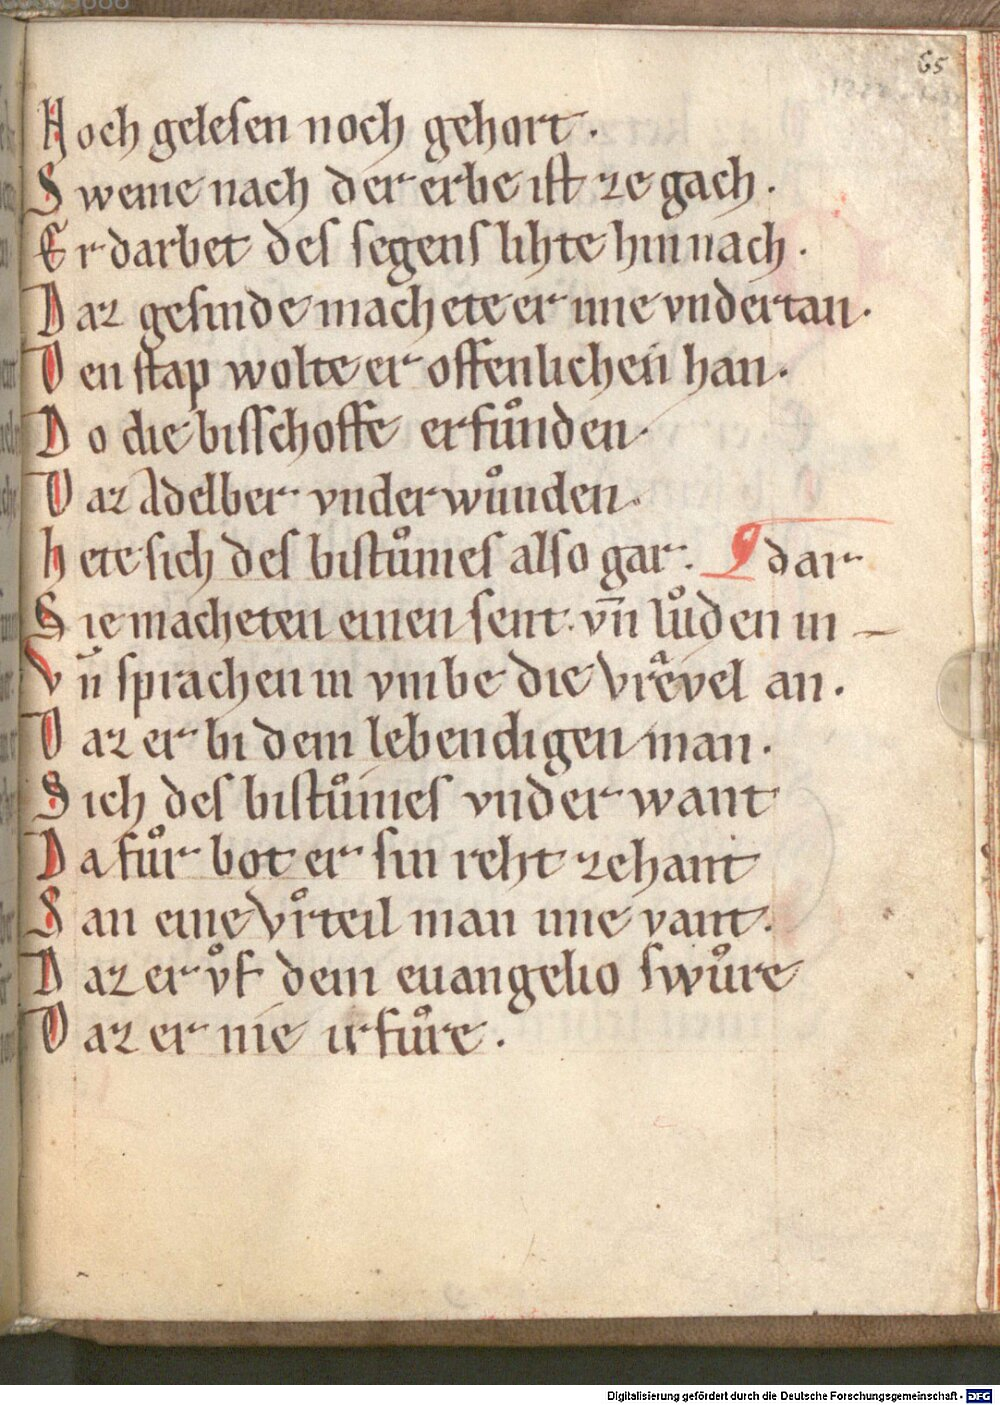 65
Noch gelesen noch gehort.
Sweme nach der erbe ist ze gach.
Er darbet des segens lihte hin nach.
Daz gesinde machete er ime vndertan.
Den stap wolte er offenlichen han.
Do die bisschoffe erfuͦnden
Daz Adelber vnderwuͦnden.
hete sich des bistuͦmes also gar. dar
Sie macheten einen sent. vn̄ luͦden in
Vn̄ sprachen in vmbe die vreͣvel an.
Daz er bi dem lebendigen man.
Sich des bistuͦmes vnderwant
Da fuͦr bot er sin reht zehant
San eine vrͦteil man ime vant.
Daz er vͦf dem euangelio swuͦre
Daz er nie irfuͦre.
Digitalisierung gefördert durch die Deutsche Forschungsgemeinschaft - DFG